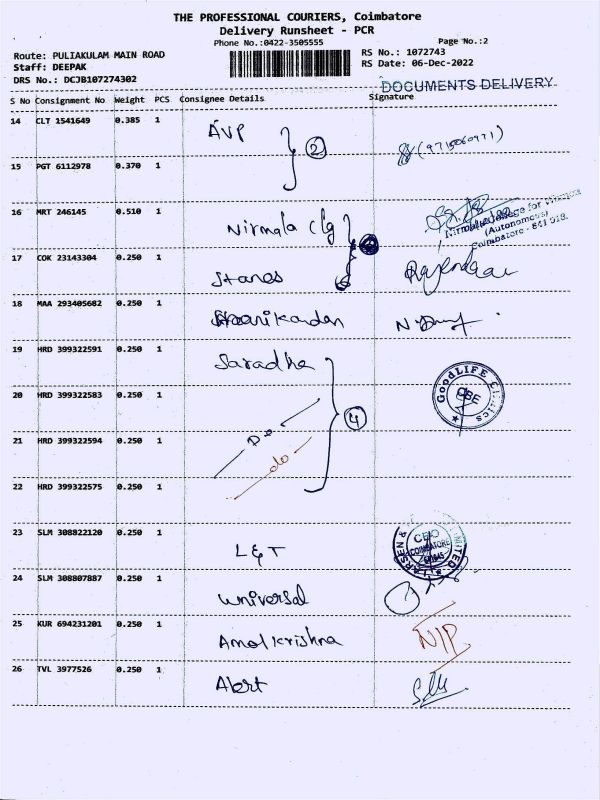 THE PROFESSIONAL COURIERS, Coimbatore
Delivery Runsheet - PCR
Phone No.:0422-3505555
Page No.:2
Route: PULIAKULAM MAIN ROAD
RS No.: 1072743
Staff: DEEPAK
RS Date: 06-Dec-2022
DRS No.: DCJB107274302
DOCUMENTS DELIVERY
S No Consignment No Weight PCS Consignee Details Signature
14 CLT 1541649 0.385 1 AVP
2
15 PGT 6112978 0.370 1
16 MRT 246145 0.510 1 Nirmala Clg
(Autonomous)
Coimbatore - 641 018.
17 COK 23143304 0.250 1 Stanes
18 MAA 293405682 0.250 1
19 HRD 399322591 0.250 1 Saradha
GoodLIFE Clinics
CBE
20 HRD 399322583 0.250 1 Do
4
21 HRD 399322594 0.250 1 do
22 HRD 399322575 0.250 1
23 SLM 308822120 0.250 1 L&T
COIMBATORE
24 SLM 308807887 0.250 1 Universal
25 KUR 694231201 0.250 1 Amal Krishna N/P
26 TVL 3977526 0.250 1 Alert